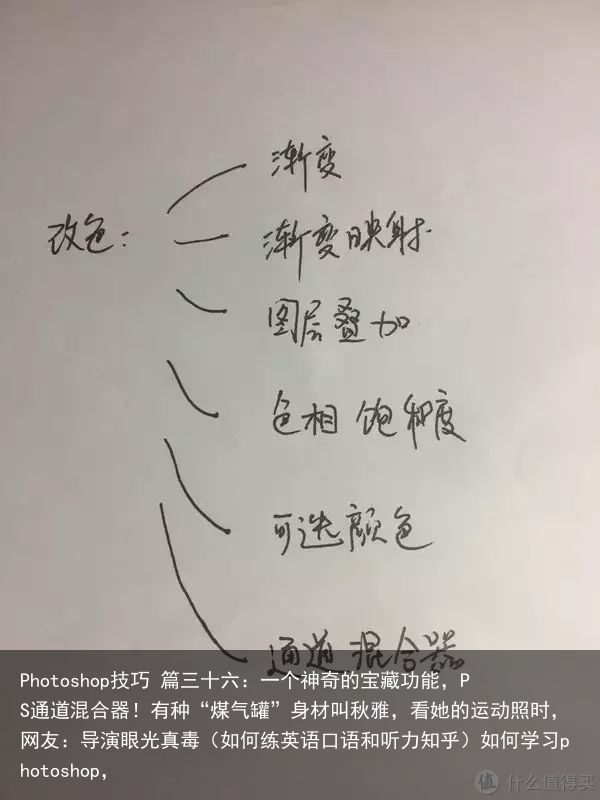 渐变
改色：
渐变映射
图层叠加
色相 饱和度
可选颜色
通道混合器
Photoshop技巧 篇三十六：一个神奇的宝藏功能，P
S通道混合器！有种“煤气罐”身材叫秋雅，看她的运动照时，
网友：导演眼光真毒（如何练英语口语和听力知乎）如何学习p
hotoshop，
值 什么值得买